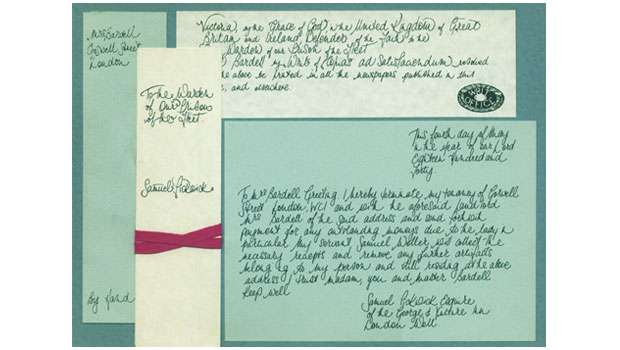 Mrs Bardell
Goswell Street
London
By Hand
To the Warden
of Our Prison
of the Fleet
Samuel Pickwick
Victoria, by the Grace of God, in the United Kingdom of Great
Britain and Ireland Defender of the Faith to the
Warden of our Prison of the Fleet
Bardell my Writ of Capias ad Satisfaciendum
the above be printed in all the newspapers published in this
and elsewhere.
WRIT OFFICE
This fourth day of May
in the year of our Lord
Eighteen Hundred and
Forty.
To Mrs Bardell Greeting. I hereby terminate my tenancy of Goswell
Street London WC1 and with the aforesaid landlord
Mrs Bardell of the said address and send forthwith
payment for any outstanding moneys due to the lady in
particular. My servant Samuel Weller will collect the
necessary receipts and remove any further artifacts
belonging to my person and still residing at the above
address, I trust madam, you and Master Bardell
keep well
Samuel Pickwick Esquire
of the George & Vulture Inn
London Wall